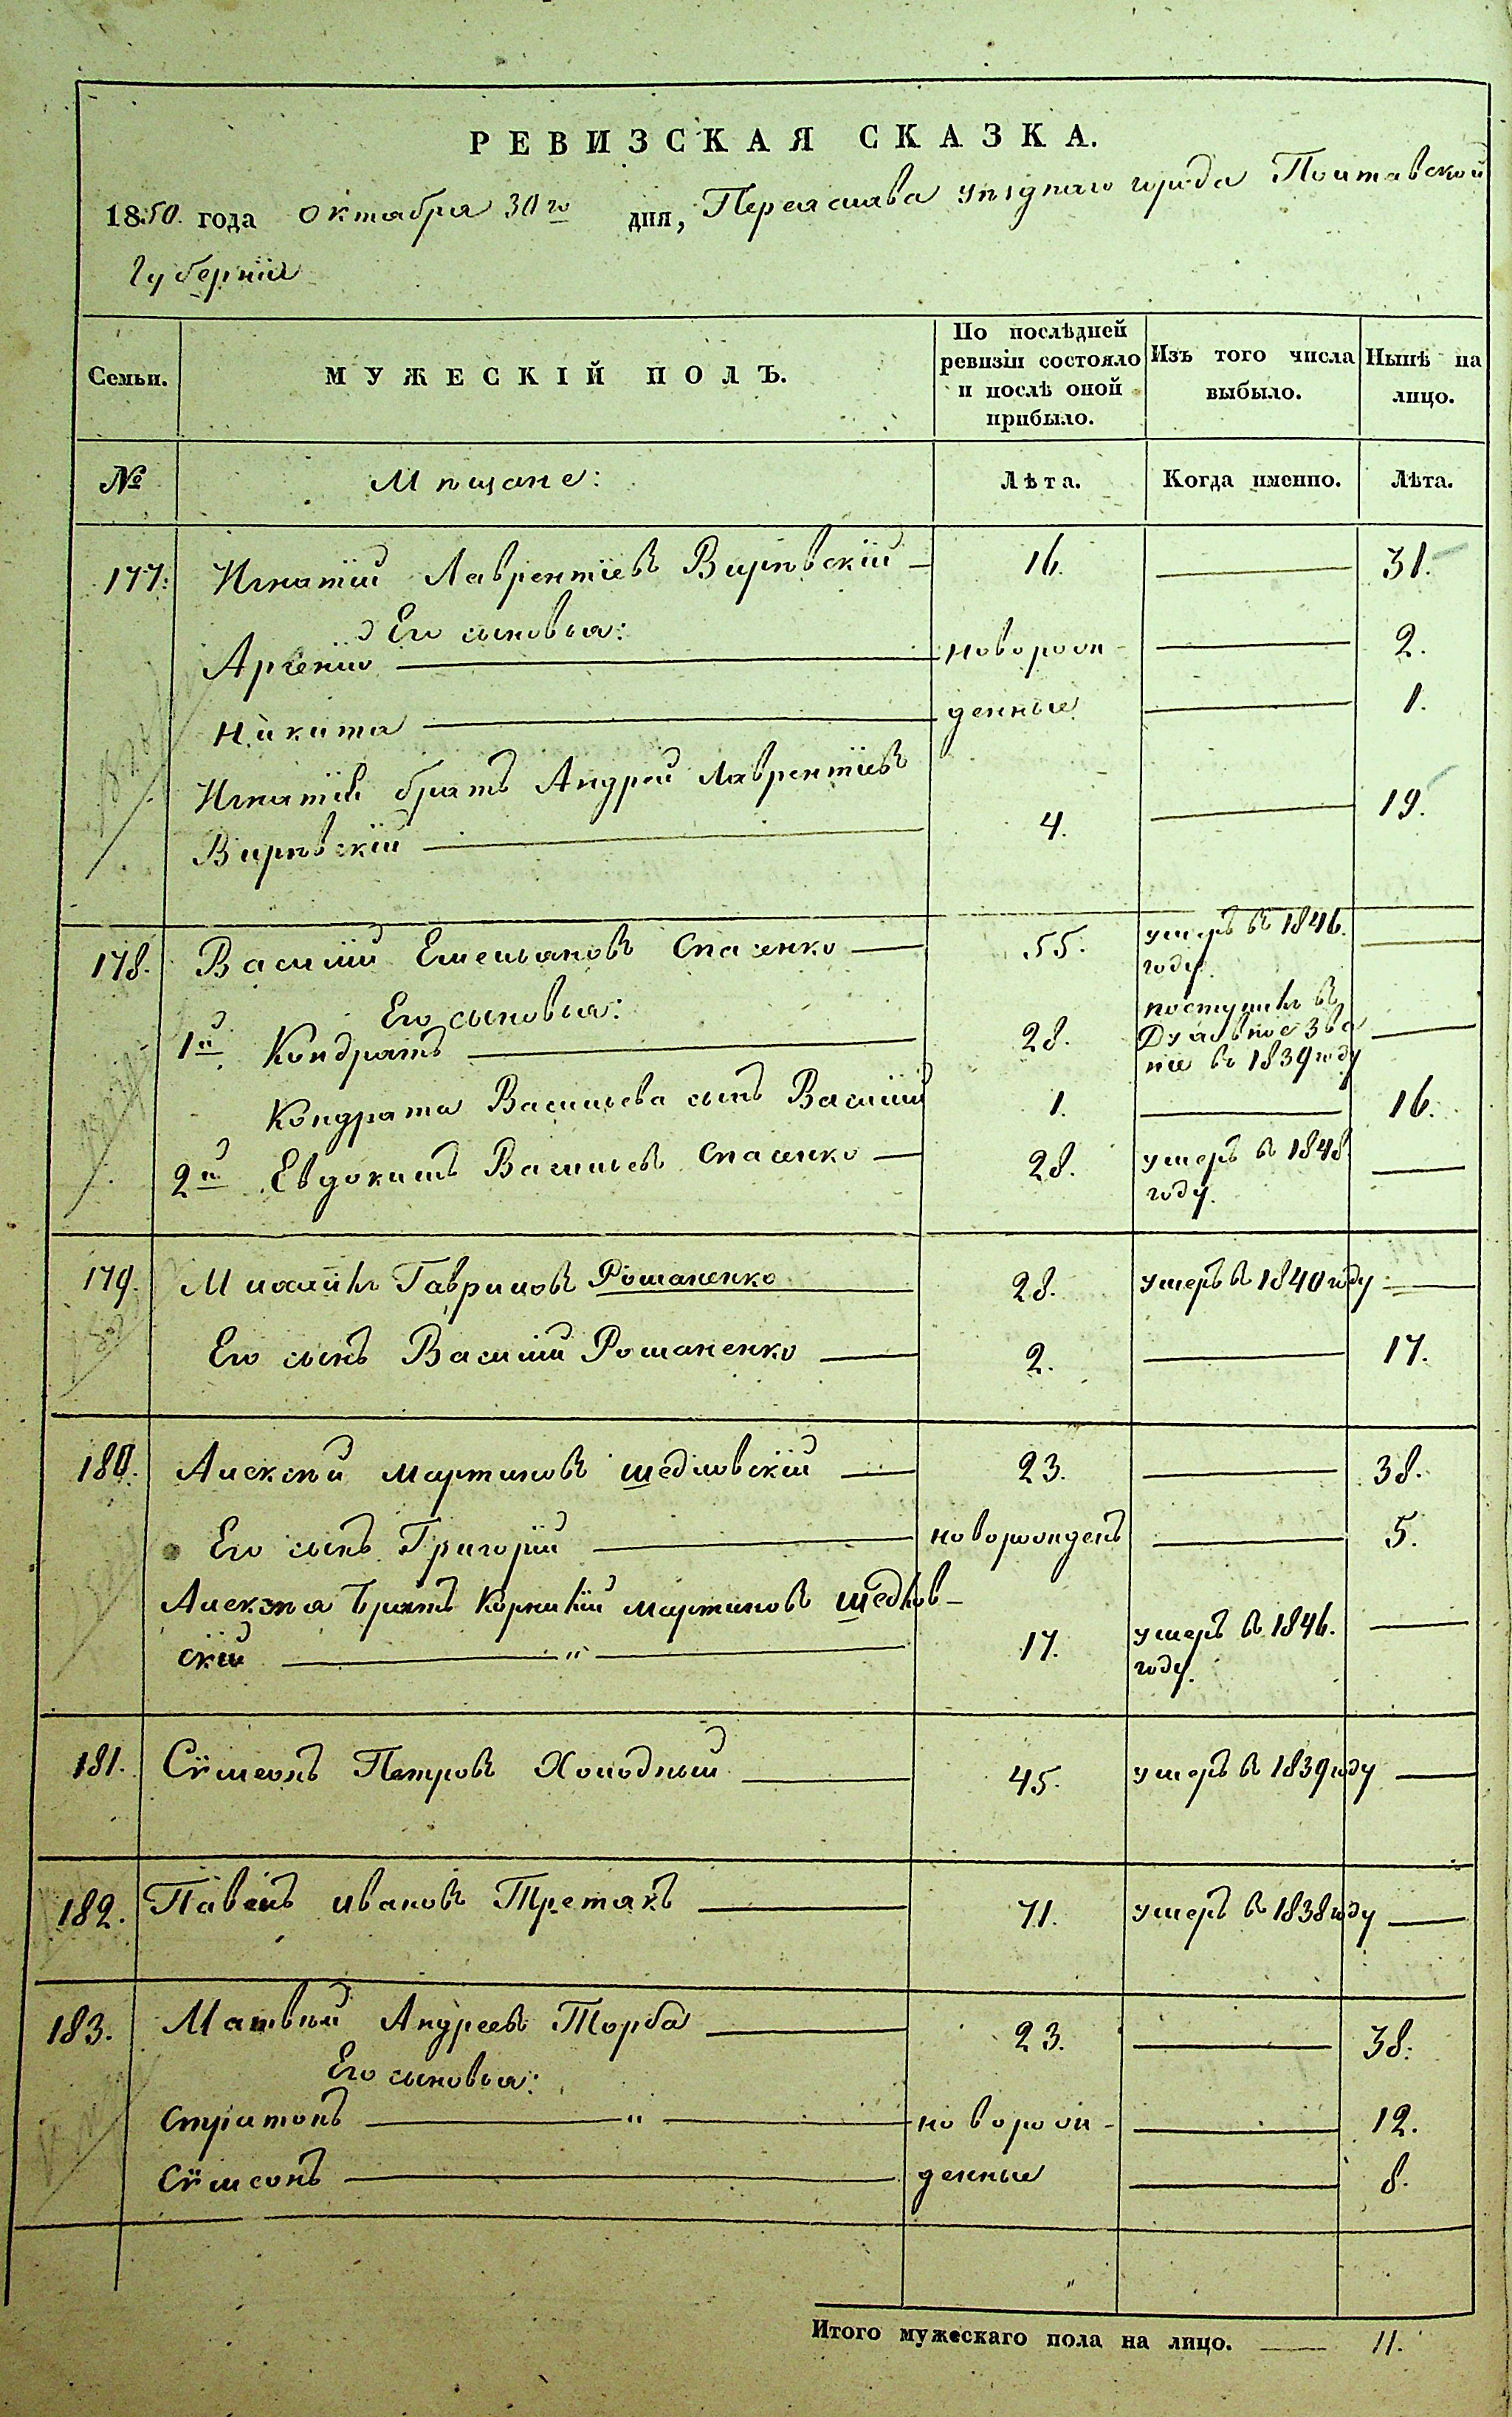 РЕВИЗСКАЯ СКАЗКА.
1850. года октабря 30го дня, Переяслава уѣзднаго города Полтавской
Губерніи
Семьи. МУЖЕСКІЙ ПОЛЪ. По послѣдней ревизіи состояло и послѣ оной прибыло. Изъ того числа выбыло. Нынѣ на лицо.
№ Мѣщане: Лѣта. Когда именно. Лѣта.
177. Игнатій Лаврентіевъ Вирѣвскій 16. 31.
Его сыновья:
Арсеній новорож- 2.
Никита денные 1.
Игнатія братъ Андрей Лаврентіевъ
Вирѣвскій 4. 19.
178. Василій Емельяновъ Спасенко 55. умеръ въ 1846. году.
Его сыновья:
1й Кондратъ 28. поступилъ въ Духовное Зва ніе въ 1839 году
Кондрата Васильева сынъ Василій 1. 16.
2й Евдокимъ Васильевъ Спасенко 28. умеръ въ 1848 году.
179. Михаилъ Гавриловъ Романенко 28. умеръ въ 1840 году
Его сынъ Василій Романенко 2. 17.
180. Алексѣй Мартиновъ Шедловскій 23. 38.
Его сынъ Григорій новорожденъ 5.
Алексѣя братъ Корнилій Мартиновъ Шедлов-
скій " 17. умеръ въ 1846. году.
181. Сѵмеонъ Петровъ Холодный 45. умеръ въ 1839 году
182. Павелъ Ивановъ Третякъ 71. умеръ въ 1838 году
183. Матвѣй Андреевъ Торба 23. 38.
Его сыновья:
Стратонъ " новорож- 12.
Сѵмеонъ денные 8.
Итого мужескаго пола на лицо. 11.